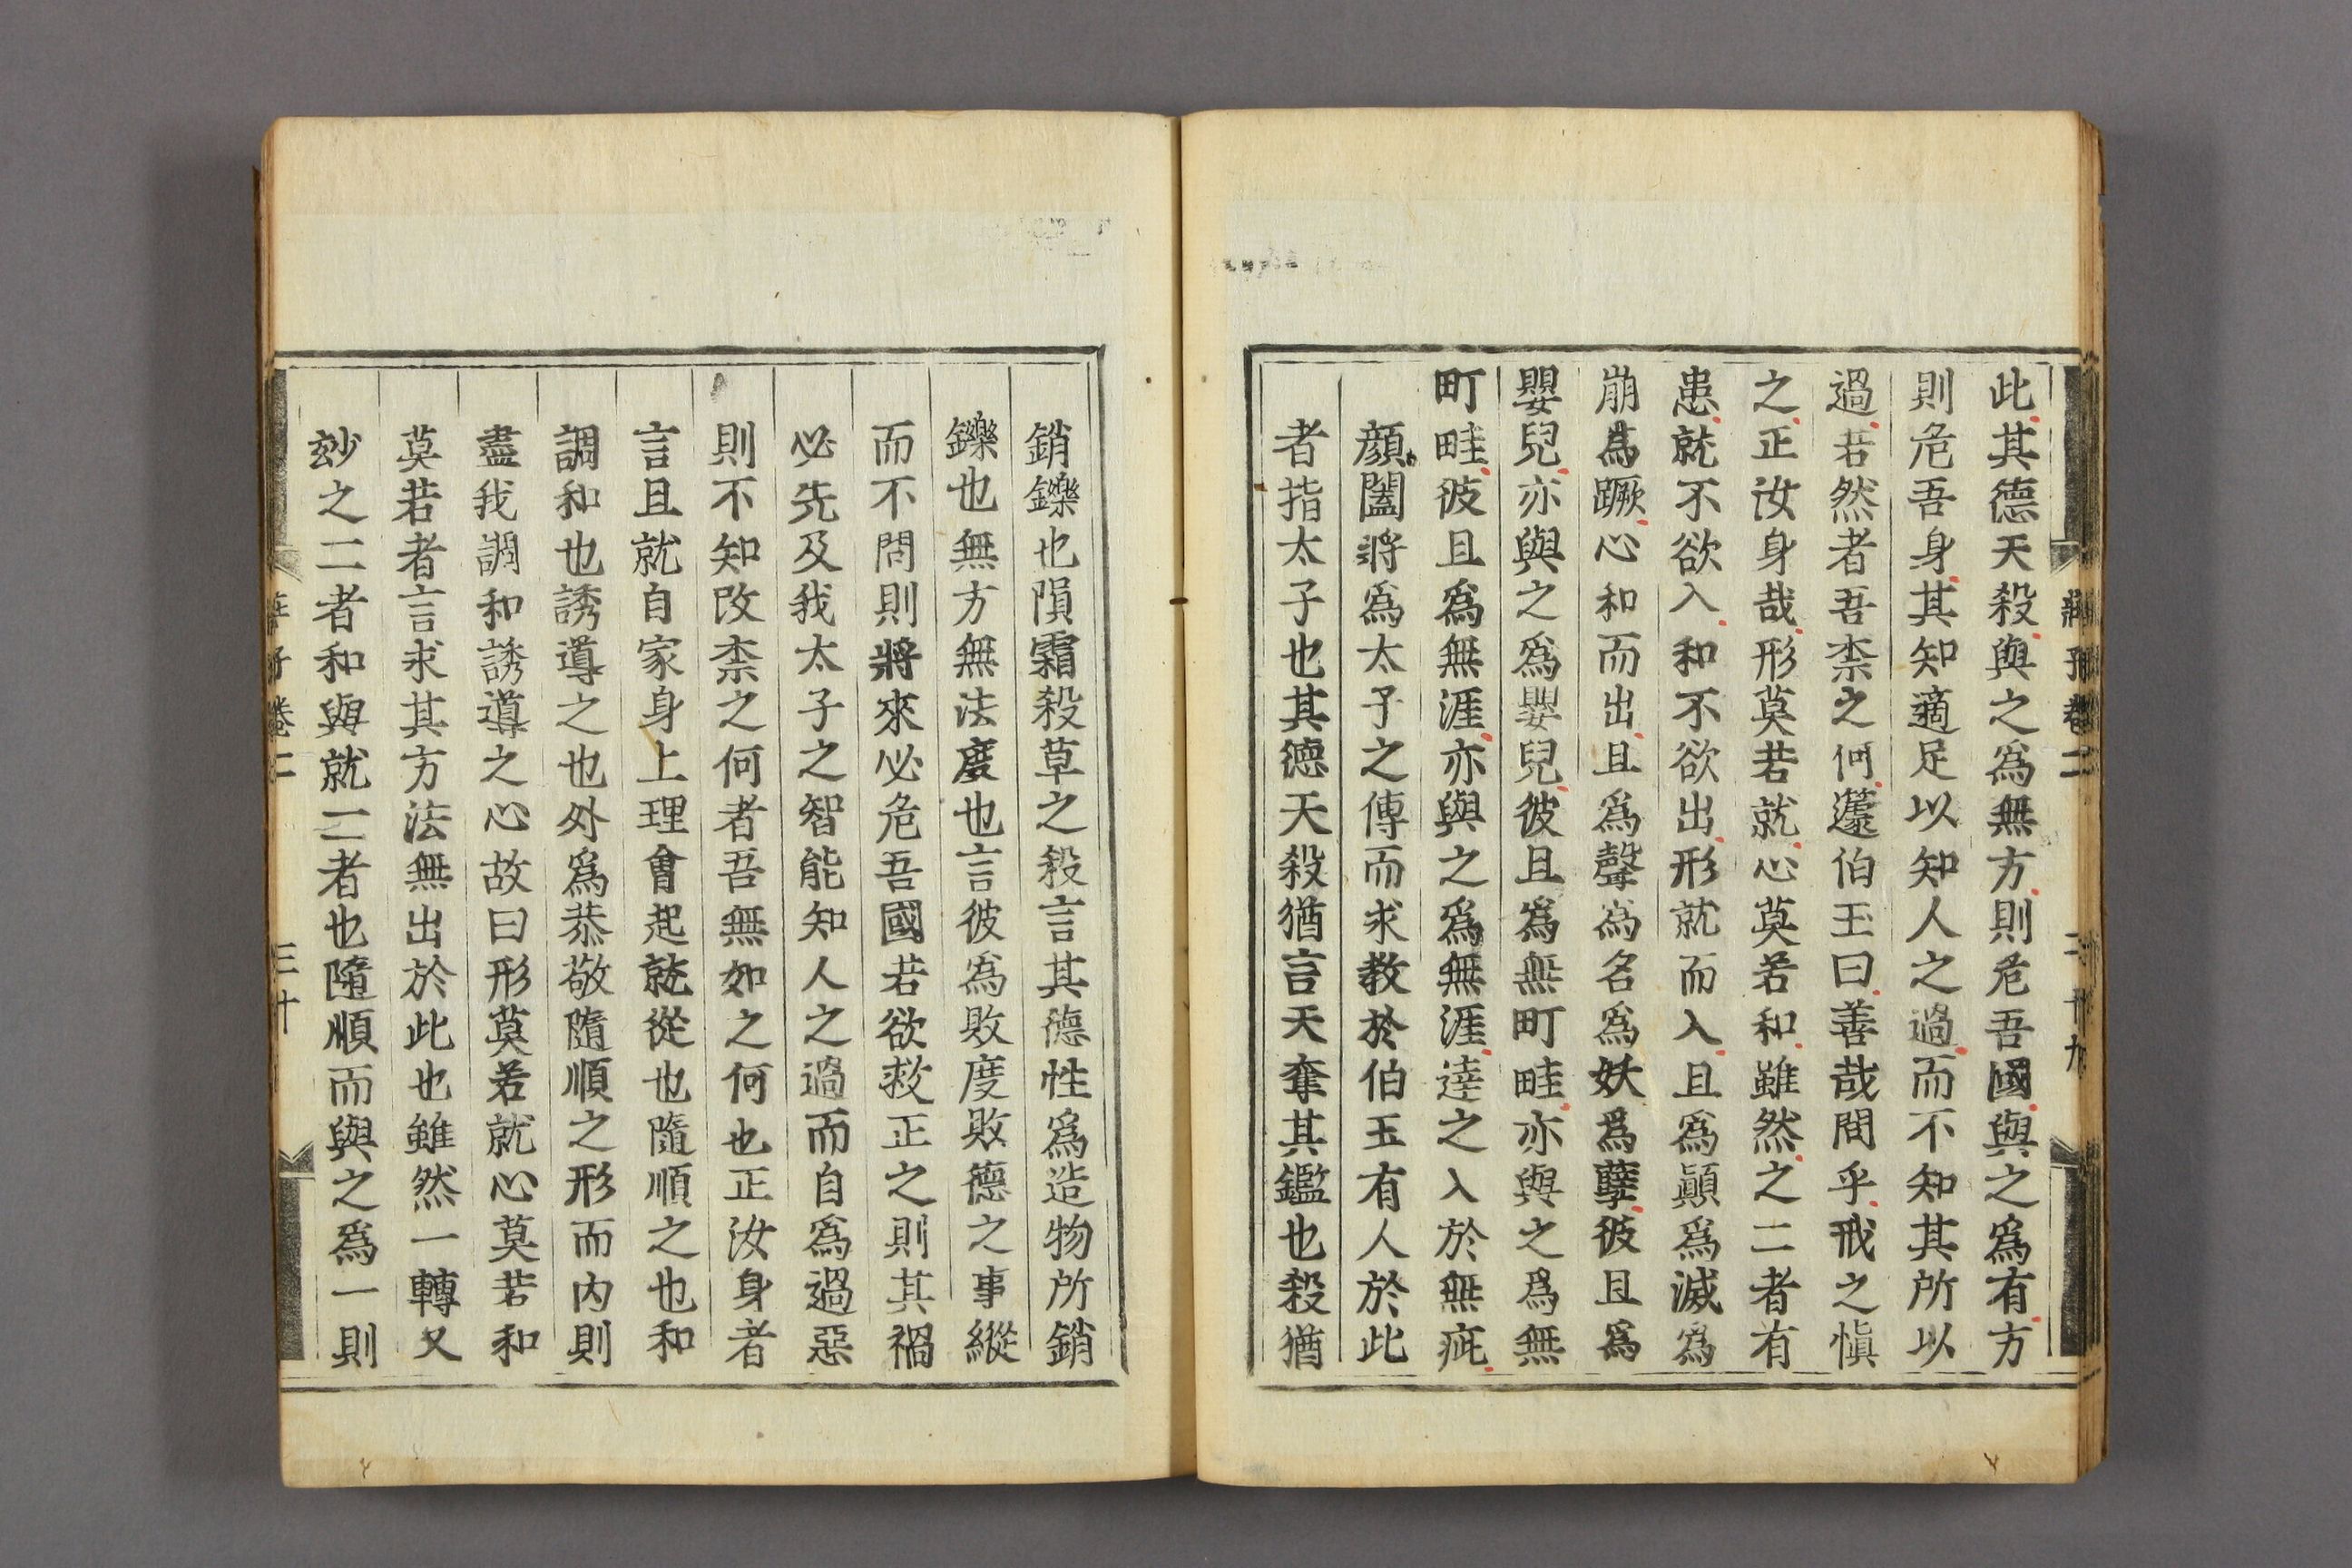 此其德天殺與之爲無方則危吾國與之爲有方
則危吾身其知適足以知人之過而不知其所以
過若然者吾柰之何蘧伯玉曰善哉問乎戒之愼
之正汝身哉形莫若就心莫若和雖然之二者有
患就不欲入和不欲出形就而入且爲顚爲滅爲
崩爲蹶心和而出且爲聲爲名爲妖爲孽彼且爲
嬰兒亦與之爲嬰兒彼且爲無町畦亦與之爲無
町畦彼且爲無涯亦與之爲無涯逹之入於無疵
顔闔將爲太子之傅而求敎於伯玉有人於此
者指太子也其德天殺猶言天奪其鑑也殺猶
莊子卷二 二十九
銷鑠也隕霜殺草之殺言其德性爲造物所銷
鑠也無方無法度也言彼爲敗度敗德之事縱
而不問則將來必危吾國若欲救正之則其禍
必先及我太子之智能知人之過而自爲過惡
則不知改柰之何者吾無如之何也正汝身者
言且就自家身上理會起就從也隨順之也和
調和也誘導之也外爲恭敬隨順之形而内則
盡我調和誘導之心故曰形莫若就心莫若和
莫若者言求其方法無出於此也雖然一轉又
玅之二者和與就二者也隨順而與之爲一則
莊子卷二 三十